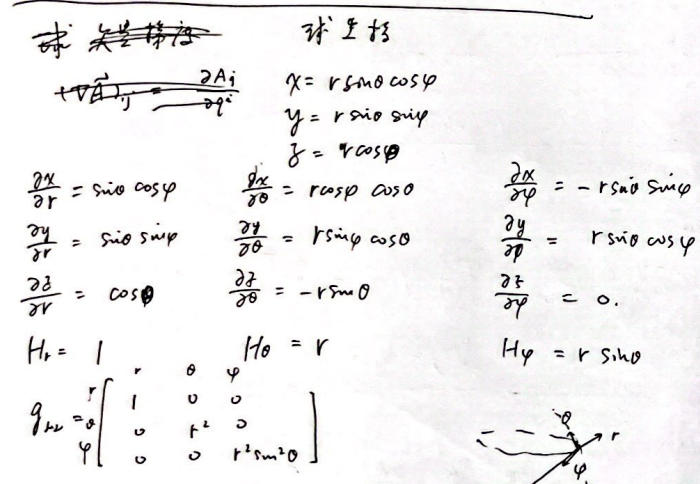 球坐标
x = r sinθ cosφ
y = r sinθ sinφ
z = r cosθ
∂x/∂r = sinθ cosφ ∂x/∂θ = r cosφ cosθ ∂x/∂φ = -r sinθ sinφ
∂y/∂r = sinθ sinφ ∂y/∂θ = r sinφ cosθ ∂y/∂φ = r sinθ cosφ
∂z/∂r = cosθ ∂z/∂θ = -r sinθ ∂z/∂φ = 0.
Hr = 1 Hθ = r Hφ = r sinθ
r θ φ
r 1 0 0
θ 0 r² 0
φ 0 0 r² sin²θ
θ r
φ